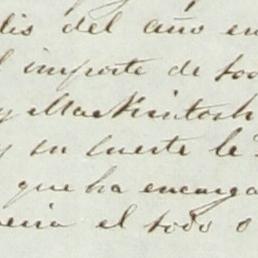 dis del año en
importe de so
y MacKintosh
y su suerte le
que ha encarga
el todo o